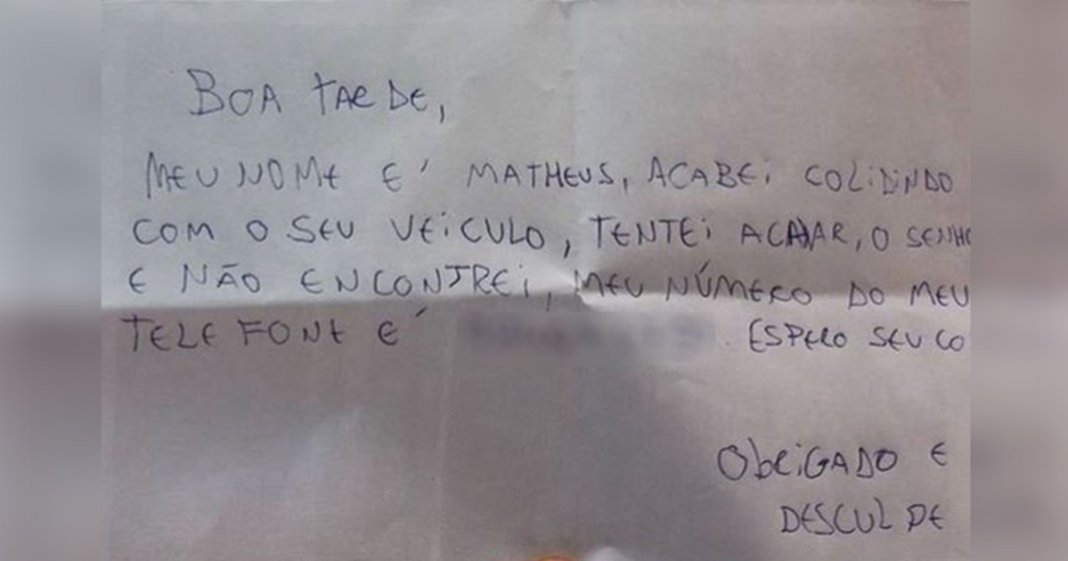 BOA TARDE,
MEU NOME E' MATHEUS, ACABEI COLIDINDO
COM O SEU VEÍCULO, TENTEI ACHAR, O SENHO
E NÃO ENCONTREI, MEU NÚMERO DO MEU
TELEFONE E' . ESPERO SEU CO
OBRIGADO E
DESCULPE